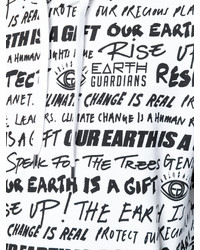 PROTECT OUR PRECIOUS PLA
EARTH IS A GIFT OUR EARTH
RIGHTS RISE UP
EARTH
TECT GUARDIANS RES
ANET. CLIMATE CHANGE IS REAL PROTEC
LEADERS. CLIMATE CHANGE IS A HUMAN
IS A GIFT OUR EARTH IS
SPEAK FOR THE TREES GEN
OUR EARTH IS A GIFT
SE UP! THE EARTH
CHANGE IS REAL PROTECT OUR
OUR EARTH IS A